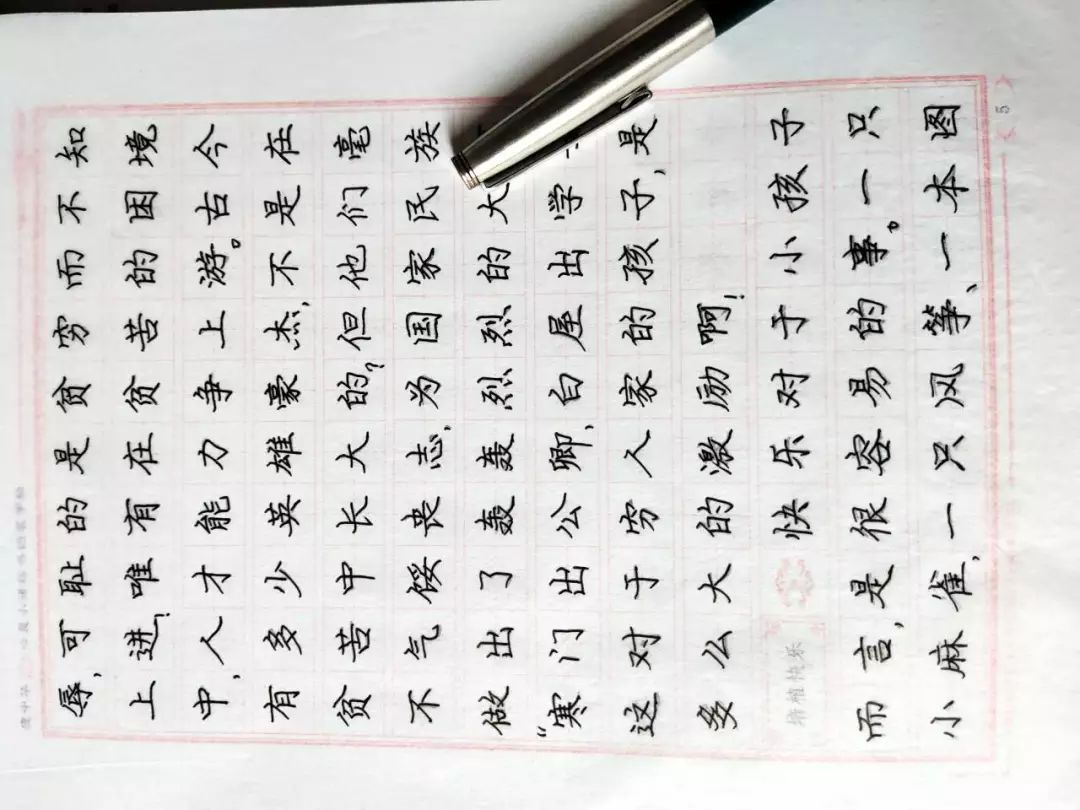 辱,可耻的是贫穷而不知
上进!唯有在贫苦的困境
中,人才能力争上游。古今
有多少英雄豪杰,不是在
贫苦中长大的?但他们毫
不气馁丧志,为国家民族
做出了轰轰烈烈的大
“寒门出公卿,白屋出学
这对于穷人家的孩子,是
多么大的激励啊!
培植快乐 快乐对于小孩子
而言,是很容易的事。一只
小麻雀,一只风筝、一本图
5